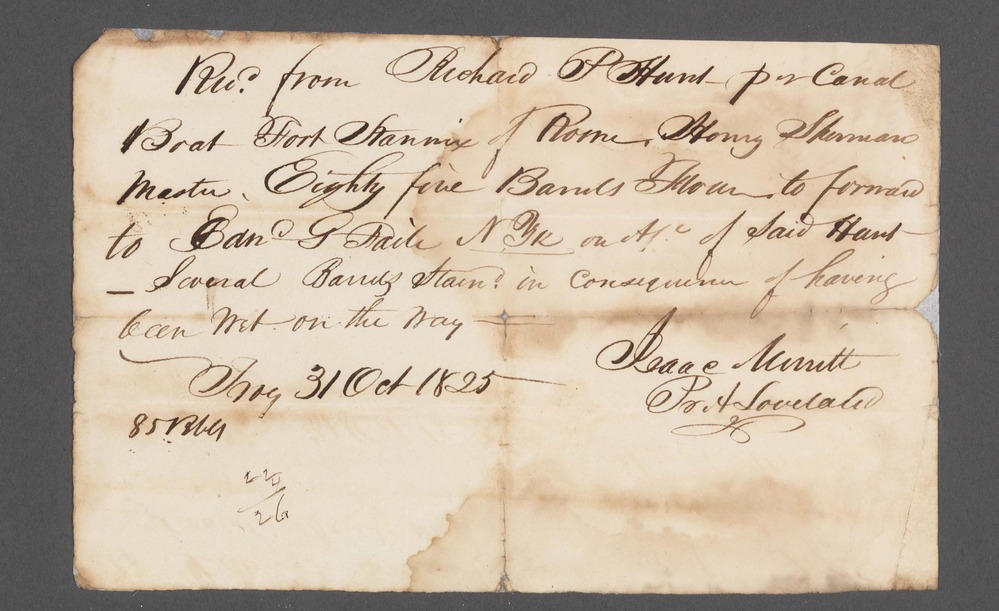 Recd. from Richard P Hunt per Canal
Boat Fort Stannix of Rome. Henry Sherman
Master. Eighty five Barrels Flour to forward
to Edwd G Faile N.Yk on A/c of Said Hunt
— Several Barrels Staind in Consequence of having
been Wet on the Way —
Troy 31 Oct 1825
Isaac Merritt
Pr A Loveland
85 Bbls
26